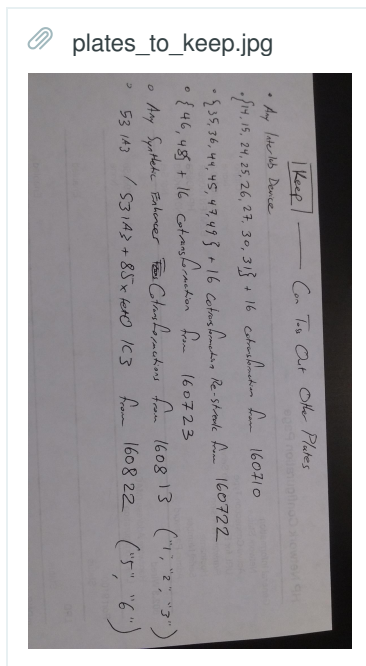 plates_to_keep.jpg
Keep — Can Toss Out Other Plates
• Any Interlab Device
• {14, 15, 24, 25, 26, 27, 30, 31} + 16 cotransformation from 160710
• {35, 36, 44, 45, 47, 49} + 16 Cotransformation Re-streak from 160722
• {46, 48} + 16 Cotransformation from 160723
• Any Synthetic Enhancer Cotransformations from 160813 ("1", "2", "3")
• 531A3 / 531A3 + 85x tetO 1C3 from 160822 ("5", "6")